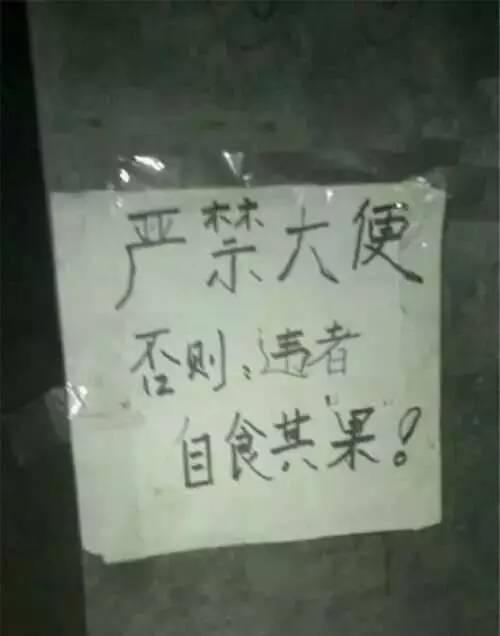 严禁大便
否则:违者
自食其"果"!